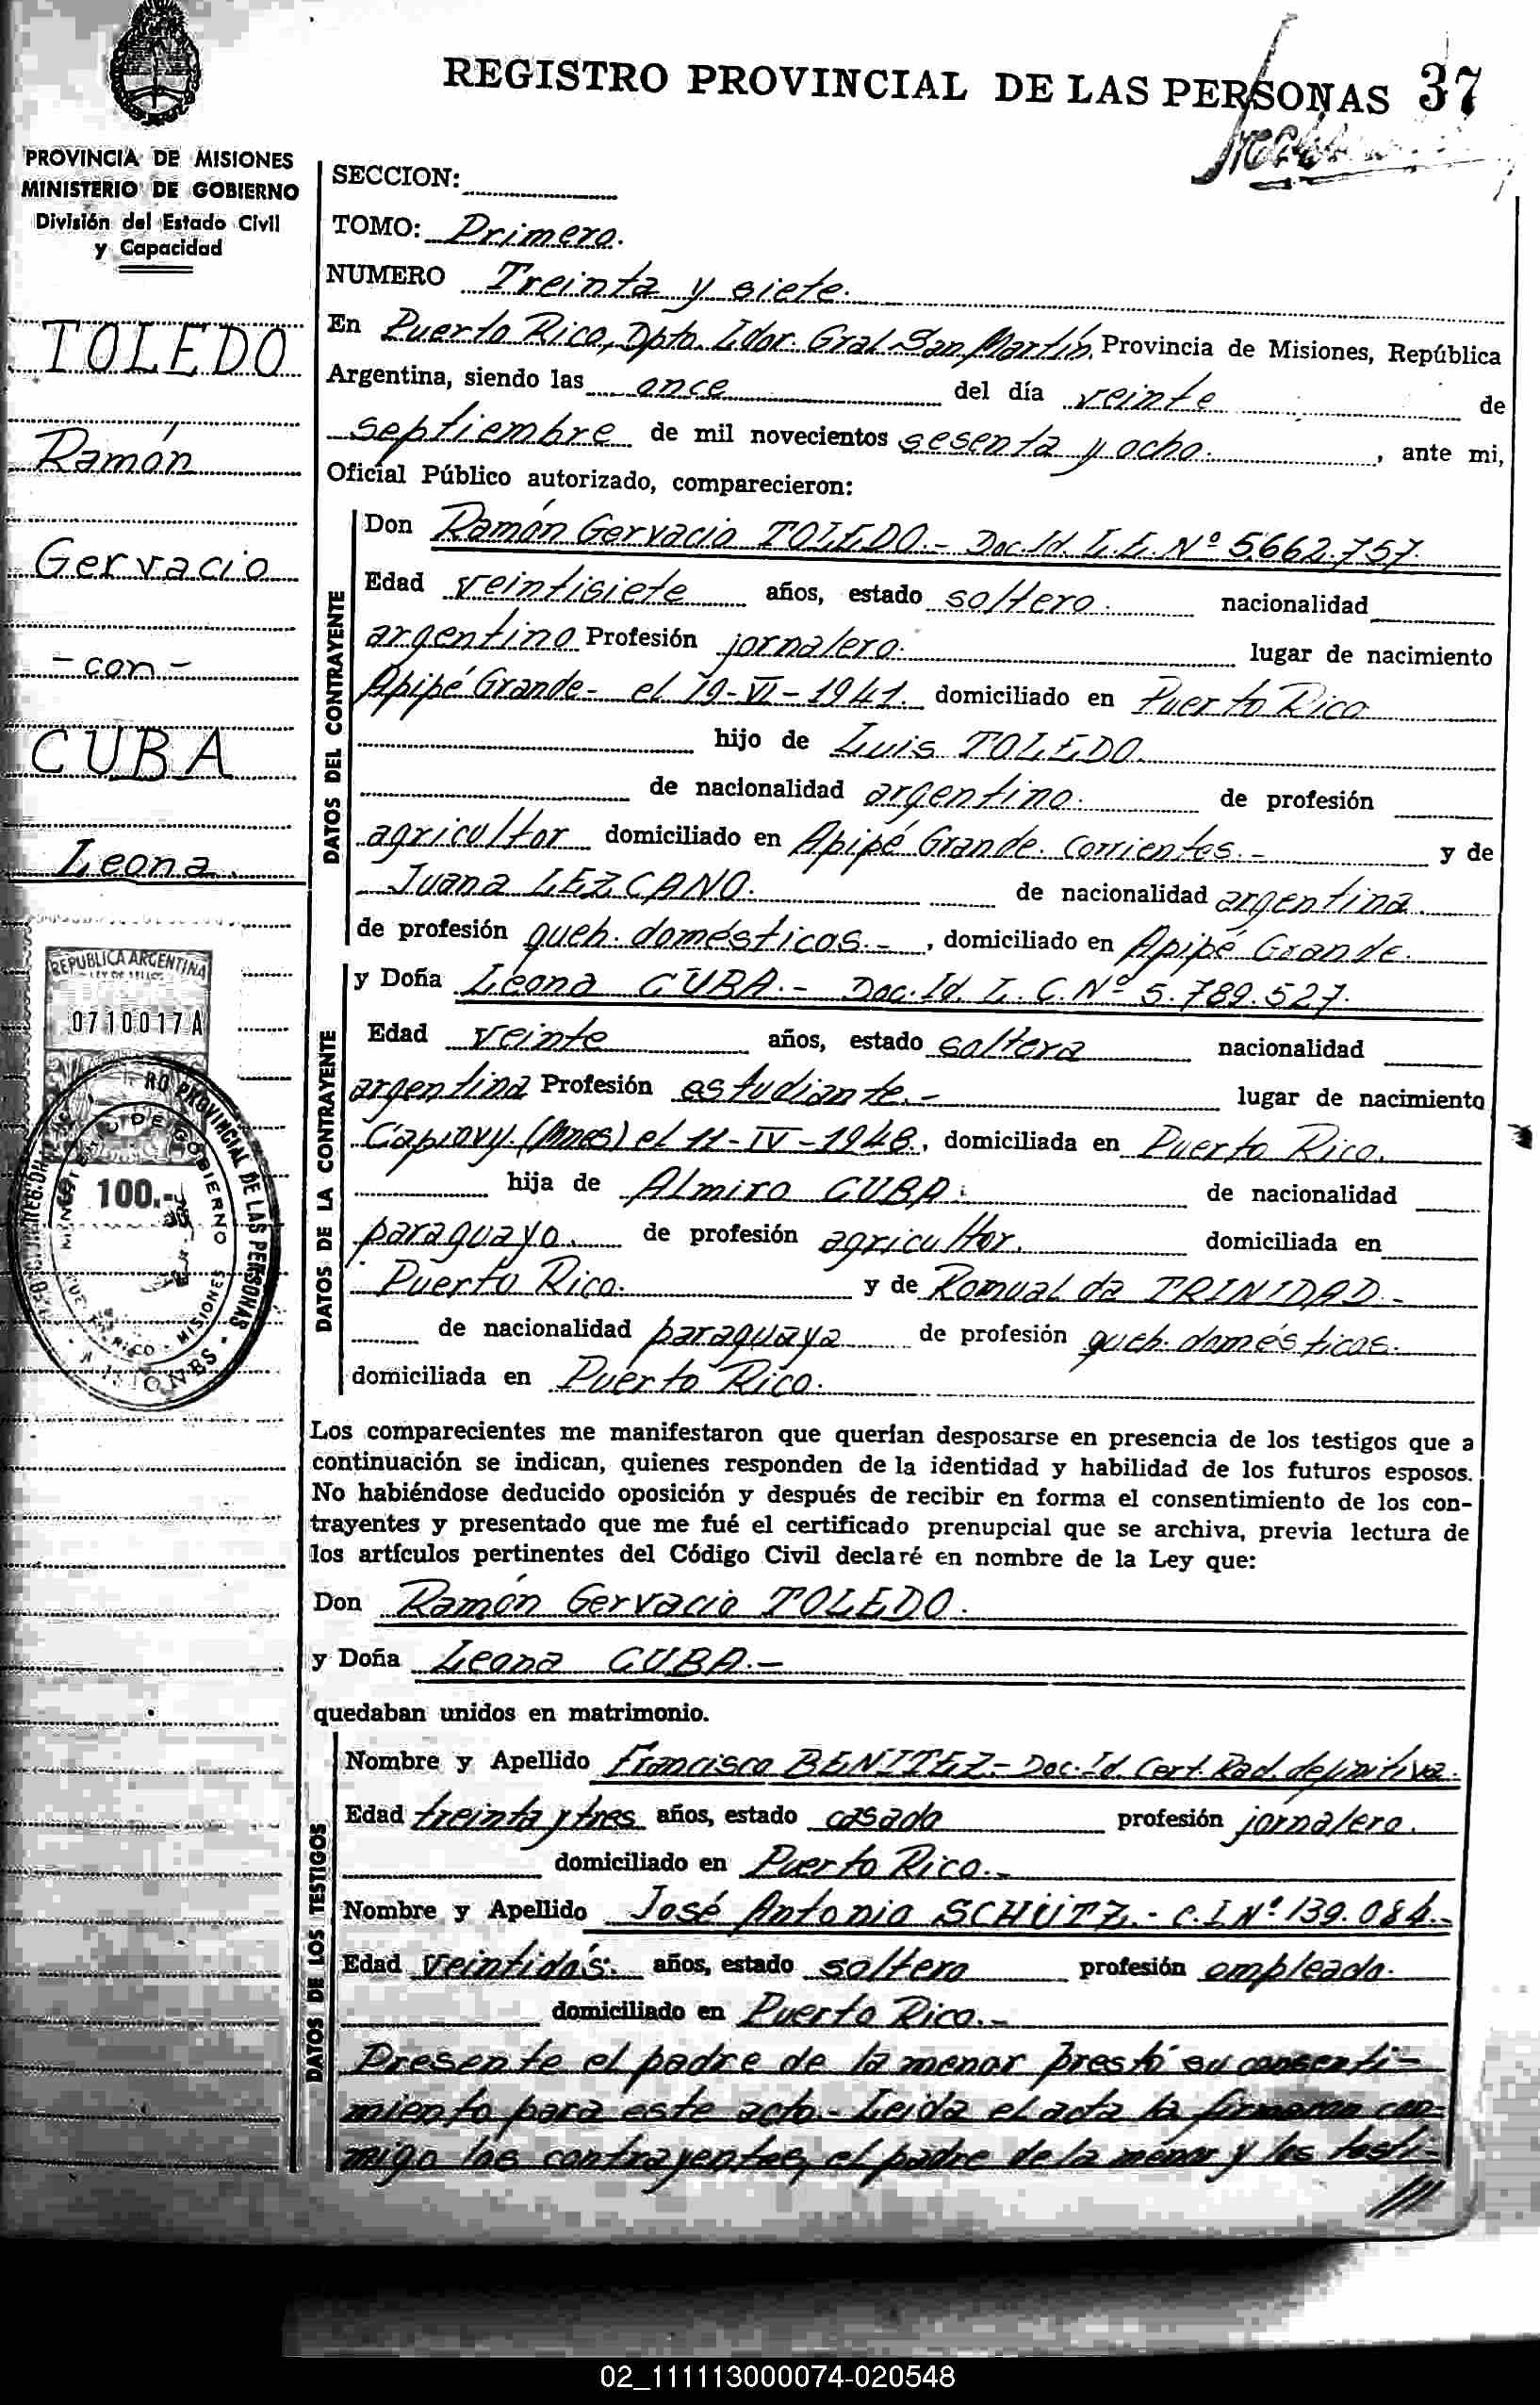 REGISTRO PROVINCIAL DE LAS PERSONAS 37
PROVINCIA DE MISIONES
MINISTERIO DE GOBIERNO
División del Estado Civil
y Capacidad
TOLEDO
Ramón
Gervacio
- con -
CUBA
Leona.
REPUBLICA ARGENTINA
LEY DE SELLOS
0710017A
100.-
SECCION:
TOMO: Primero.
NUMERO Treinta y siete.
En Puerto Rico, Dpto. Ldor. Gral San Martín, Provincia de Misiones, República
Argentina, siendo las once del día veinte de
septiembre de mil novecientos sesenta y ocho. , ante mi,
Oficial Público autorizado, comparecieron:
DATOS DEL CONTRAYENTE
Don Ramón Gervacio TOLEDO.- Doc. Id. L.E. Nº 5.662.757.
Edad veintisiete años, estado soltero. nacionalidad
argentino Profesión jornalero. lugar de nacimiento
Apipé Grande- el 19-VI-1941. domiciliado en Puerto Rico
hijo de Luis TOLEDO.
de nacionalidad argentino. de profesión
agricultor domiciliado en Apipé Grande. Corrientes.- y de
Juana LEZCANO. de nacionalidad argentina.
de profesión queh. domésticos.- , domiciliado en Apipé Grande.
DATOS DE LA CONTRAYENTE
y Doña Leona CUBA.- Doc. Id. L. C. Nº 5.789.527.
Edad veinte años, estado soltera nacionalidad
argentina Profesión estudiante.- lugar de nacimiento
Capiovy. (Mnes) el 11-IV-1948., domiciliada en Puerto Rico.
hija de Almiro CUBA. de nacionalidad
paraguayo. de profesión agricultor. domiciliada en
Puerto Rico. y de Romualda TRINIDAD.-
de nacionalidad paraguaya de profesión queh. domésticos.
domiciliada en Puerto Rico.
Los comparecientes me manifestaron que querían desposarse en presencia de los testigos que a
continuación se indican, quienes responden de la identidad y habilidad de los futuros esposos.
No habiéndose deducido oposición y después de recibir en forma el consentimiento de los con-
trayentes y presentado que me fué el certificado prenupcial que se archiva, previa lectura de
los artículos pertinentes del Código Civil declaré en nombre de la Ley que:
Don Ramón Gervacio TOLEDO.
y Doña Leona CUBA.-
quedaban unidos en matrimonio.
DATOS DE LOS TESTIGOS
Nombre y Apellido Francisco BENITEZ- Doc. Id Cert. Rad. definitiva.
Edad treinta y tres años, estado casado profesión jornalero.
domiciliado en Puerto Rico.-
Nombre y Apellido José Antonio SCHÜTZ.- C.I Nº 139.084.-
Edad veintidós. años, estado soltero profesión empleado.
domiciliado en Puerto Rico.-
Presente el padre de la menor prestó su consenti-
miento para este acto.- Leída el acta la firmaron con-
migo los contrayentes, el padre de la menor y los testi-
02_111113000074-020548